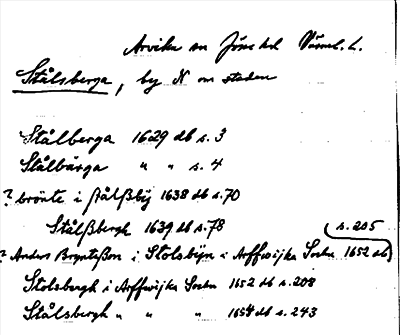 Arvika sn Jösse hd Värml. l.
Stålsberga, by N om staden
Stålberga 1629 db s. 3
Stålbärga " " s. 4
? brönte i stålßbÿ 1638 db s. 70
Stålßbergh 1639 db s. 78
? Anders Brynteßon i Stolsbÿn i Arffwijka Sochn 1652 db s. 205
Stolsbergh i Arffwijka Sochn 1652 db s. 208
Stålsbergh " " " 1654 db s. 243